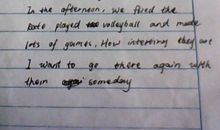 In the afternoon, we flied the
kate played volleyball and made
lots of games. How interting they are
I want to go there again with
them someday